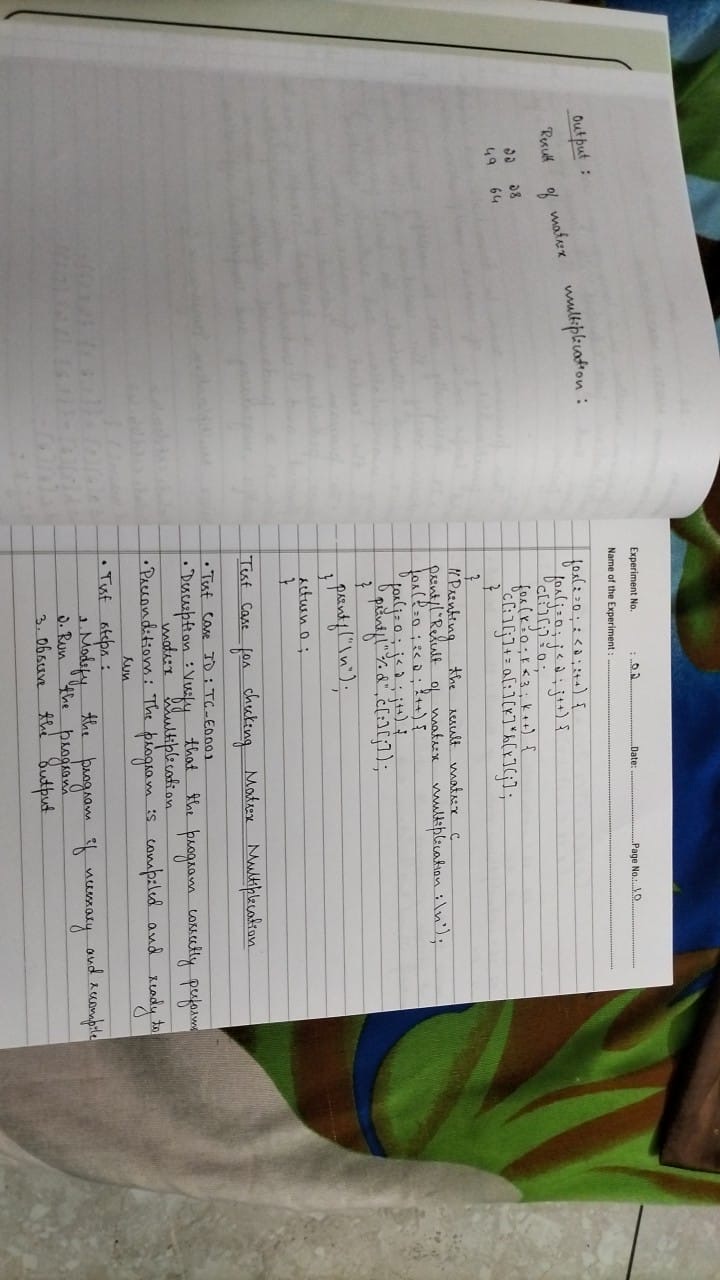 Output :
Result of matrix multiplication :
22 28
49 64
Experiment No. : 02 Date: Page No.: 10
Name of the Experiment :
for(i=0; i<2; i++) {
for(j=0; j<2; j++) {
c[i][j]=0;
for(k=0; k<3; k++) {
c[i][j]+=a[i][k]*b[k][j];
}
}
//Printing the result matrix C
printf("Result of matrix multiplication :\n");
for(i=0; i<2; i++) {
for(j=0; j<2; j++) {
printf("%d", c[i][j]);
}
printf("\n");
}
return 0;
}
Test Case for checking Matrix Multiplication
• Test case ID : TC_E0001
• Description : Verify that the program correctly perform
matrix multiplication
• Preconditions : The program is compiled and ready to
run
• Test steps :
1. Modify the program if necessary and recompile
2. Run the program
3. Observe the output